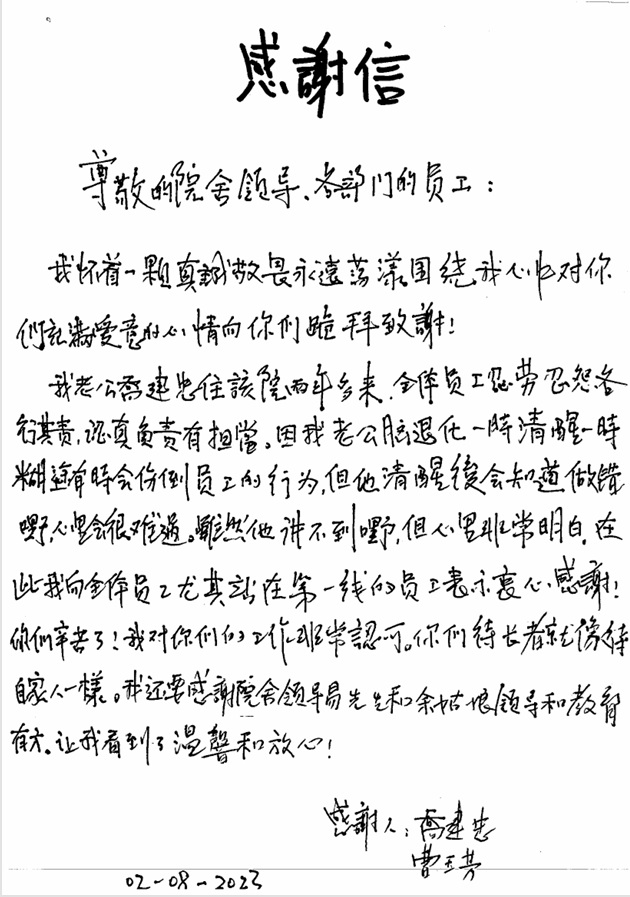 感謝信
尊敬的院舍領导、各部门的员工：
我怀着一颗真诚敬畏永遠荡漾围绕我心中对你
们充满爱意的心情向你们跪拜致謝！
我老公喬建忠住該院两年多来，全体员工忍劳忍怨各
行其责，認真负责有担當。因我老公脑退化一時清醒一時
糊塗有時会份倒员工的行为，但他清醒後会知道做錯
嘢，心里会很难過。雖然他讲不到嘢，但心里非常明白，在
此我向全体员工尤其站在第一线的员工表示衷心感謝！
你们辛苦了！我对你们的工作非常認可。你们待长者就像待
自家人一樣。我还要感謝院舍領导易先生和余姑娘領导和教育
有方。让我看到了温馨和放心！
感謝人：喬建忠
曹玉芳
02-08-2023